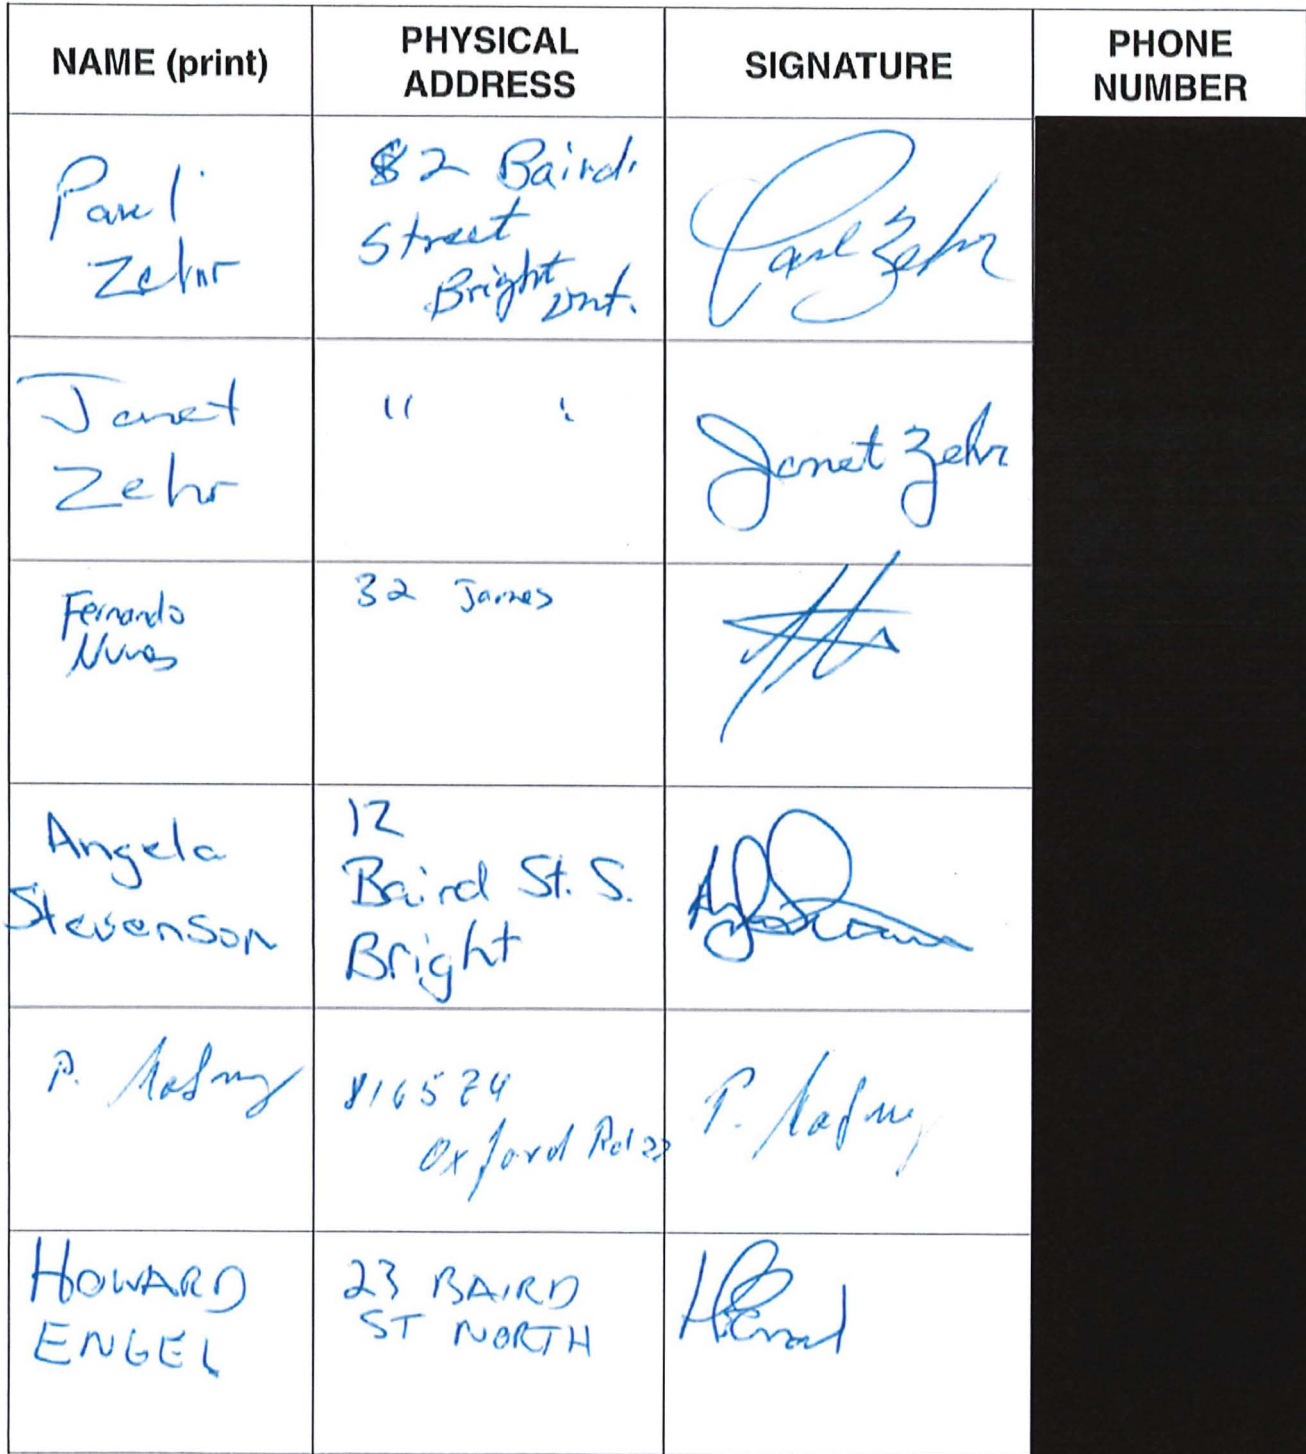 NAME (print)
PHYSICAL
ADDRESS
SIGNATURE
PHONE
NUMBER
Paul
Zehr
82 Baird
Street
Bright
Ont.
Paul Zehr
Janet
Zehr
" "
Janet Zehr
Fernando
32 James
Angela
Stevenson
12
Baird St. S.
Bright
P.
Oxford Rd 22
P.
HOWARD
ENGEL
23 BAIRD
ST NORTH